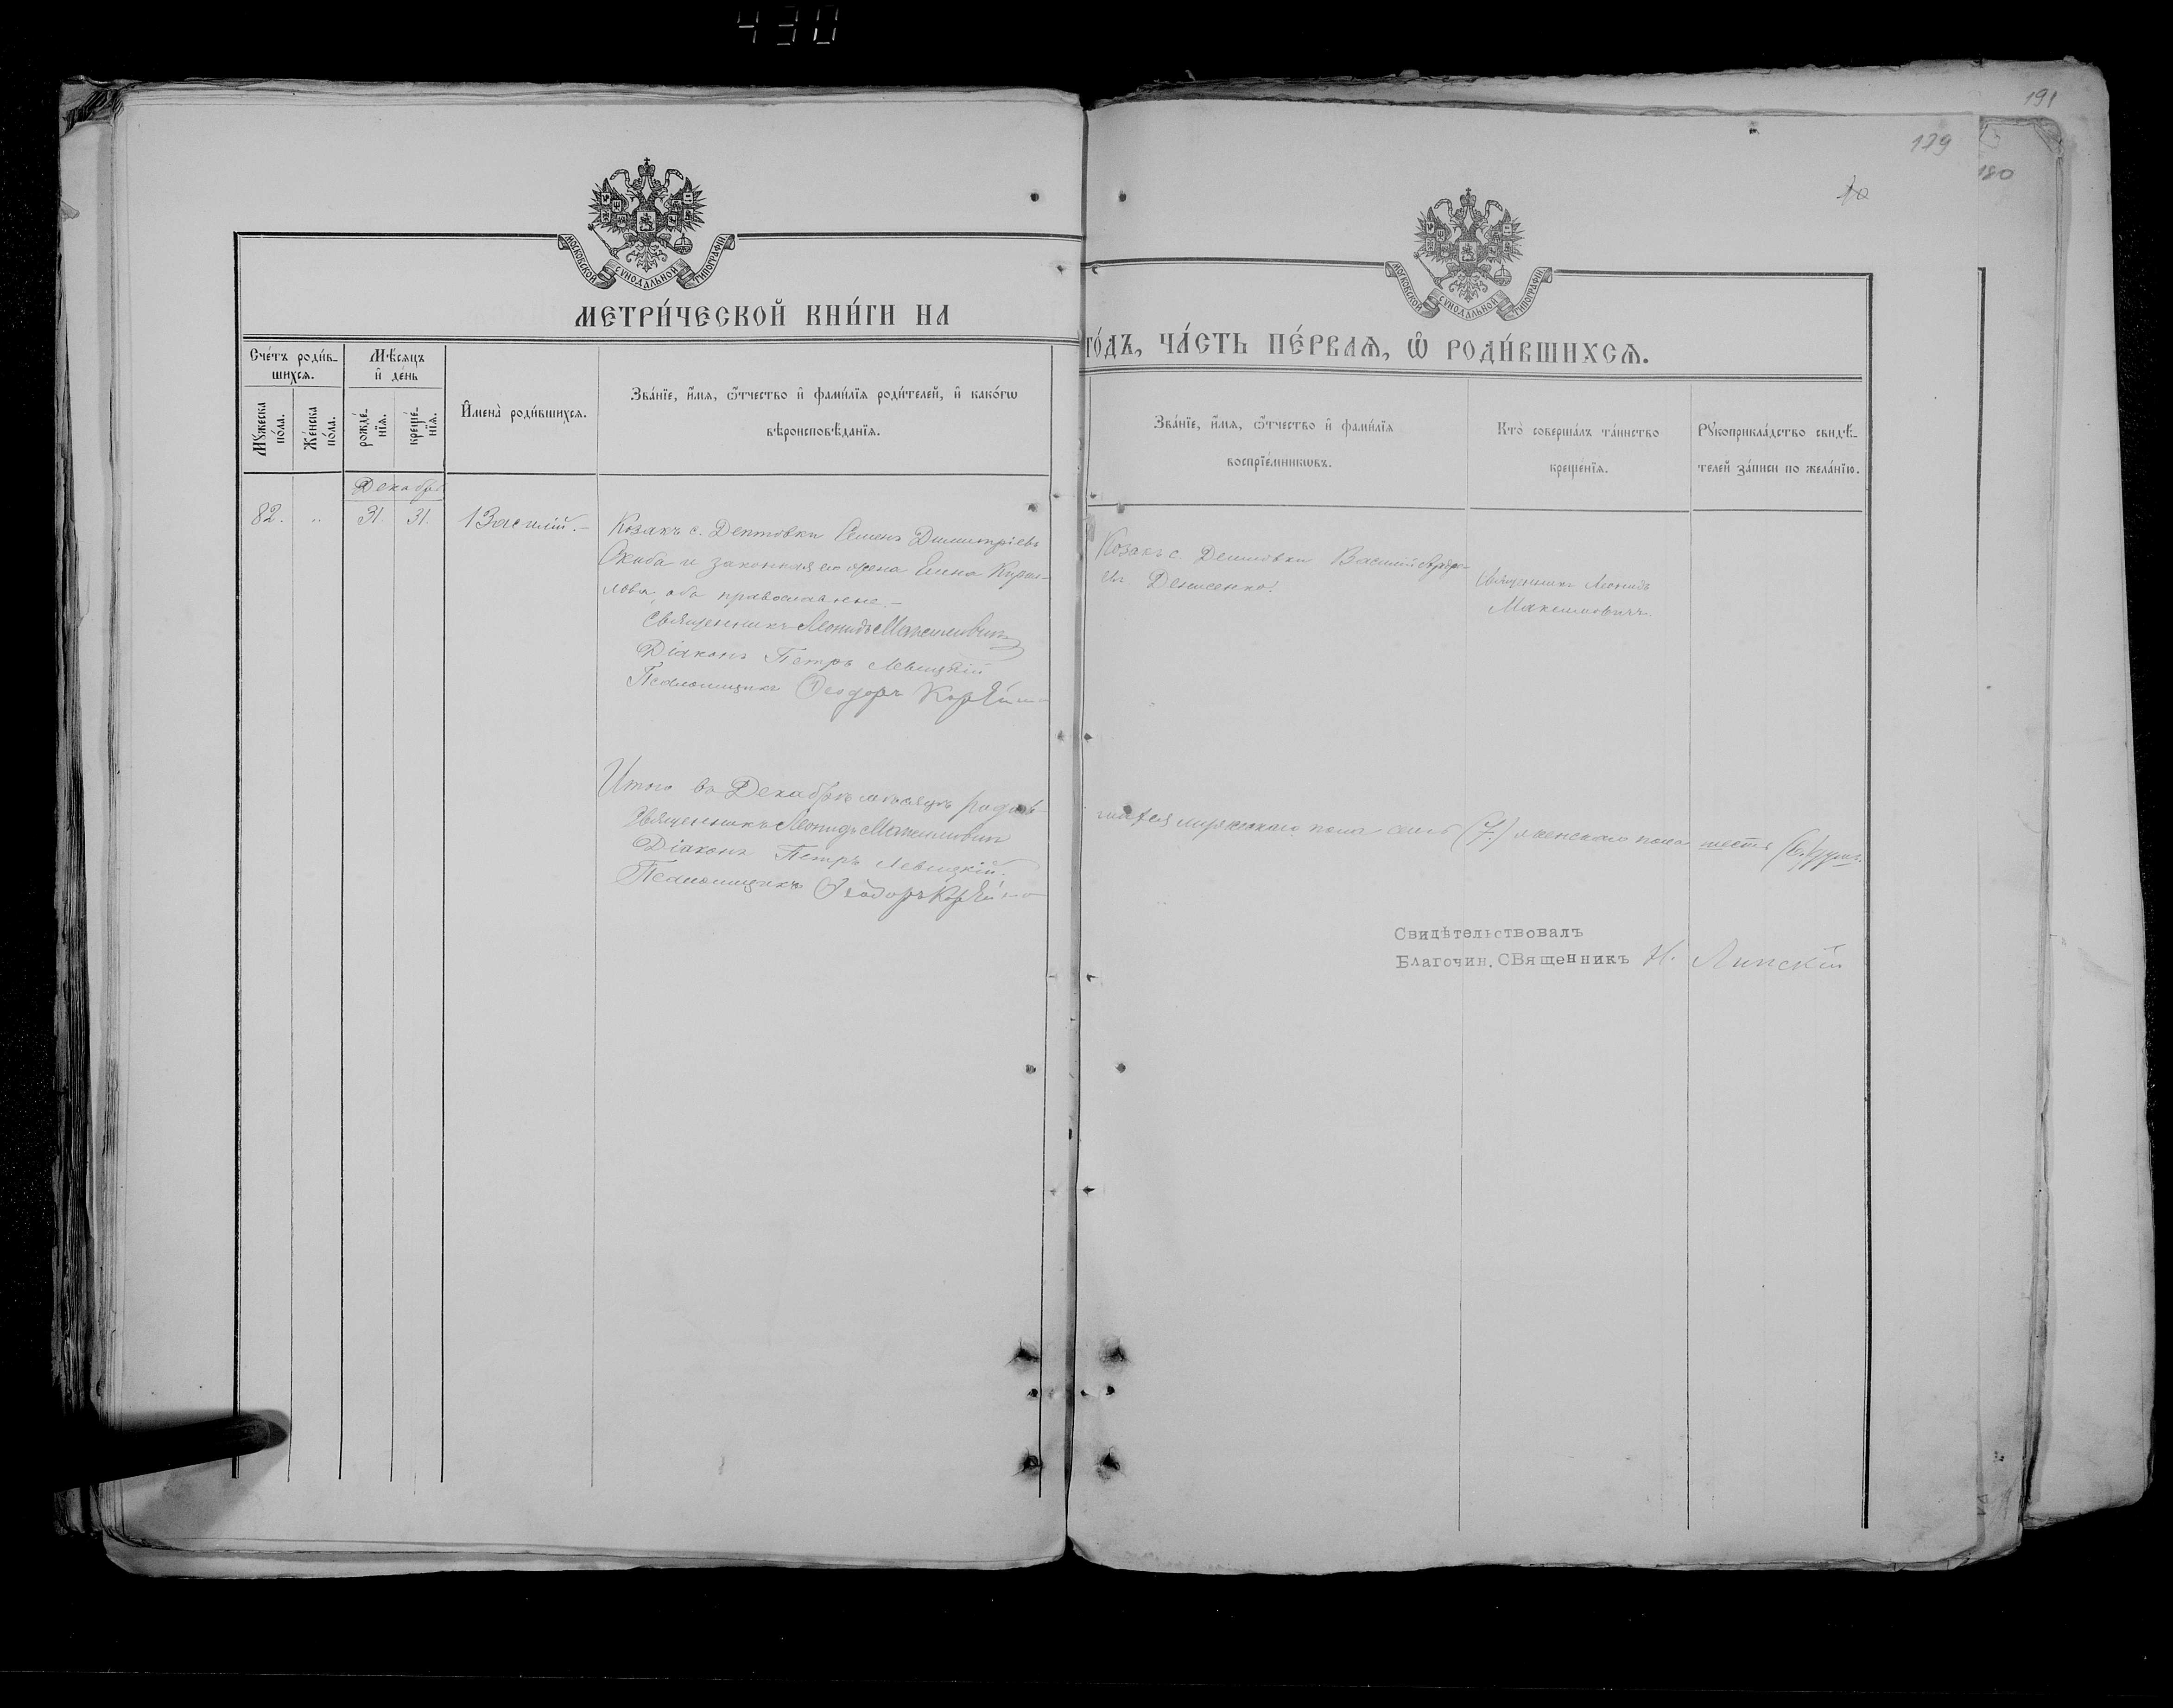 430
191
129
180
МОСКОВСКОЙ СѴНОДАЛЬНОЙ ТИПОГРАФІИ
МОСКОВСКОЙ СѴНОДАЛЬНОЙ ТИПОГРАФІИ
МЕТРИ́ЧЕСКОЙ КНИ́ГИ НА
ГО́ДЪ, ЧА́СТЬ ПЕ́РВАѦ, Ѽ РОДИ́ВШИХСѦ.
Сче́тъ роди́в-
шихсѧ.
Мѣ́сѧцъ
и҆ де́нь
Мꙋ́жеска по́ла.
Же́нска по́ла.
рожде́-нїѧ.
креще́-нїѧ.
И҆мена̀ роди́вшихсѧ.
Зва́нїе, и҆́мѧ, ѻ҆́тчество и҆ фами́лїѧ роди́телей, и҆ како́гѡ
вѣроисповѣ́данїѧ.
Зва́нїе, и҆́мѧ, ѻ҆́тчество и҆ фами́лїѧ
воспрїе́мникѡвъ.
Кто̀ соверша́лъ та́инство
креще́нїѧ.
Рꙋкоприкла́дство свидѣ́-
телей за́писи по жела́нїю.
Декабрь
82. „ 31. 31. Василій.-
Козакъ с. Дептовки Семенъ Димитріевъ
и законная его жена Анна Кирил-
лова, оба православные.-
Священникъ Леонидъ Максимовичъ
Діаконъ Петръ Левицкій
Псаломщикъ Ѳеодоръ
Козакъ с. Дептовки Василій
Денисенко.
Священникъ Леонидъ
Максимовичъ.
Итого въ Декабрѣ мѣсяцѣ родив-
шихся мужескаго пола семь (7) женскаго пола шесть (6) душъ.
Священникъ Леонидъ Максимовичъ
Діаконъ Петръ Левицкій.
Псаломщикъ Ѳеодоръ
Свидѣтельствовалъ
Благочин. СВященникъ Н. Липскій